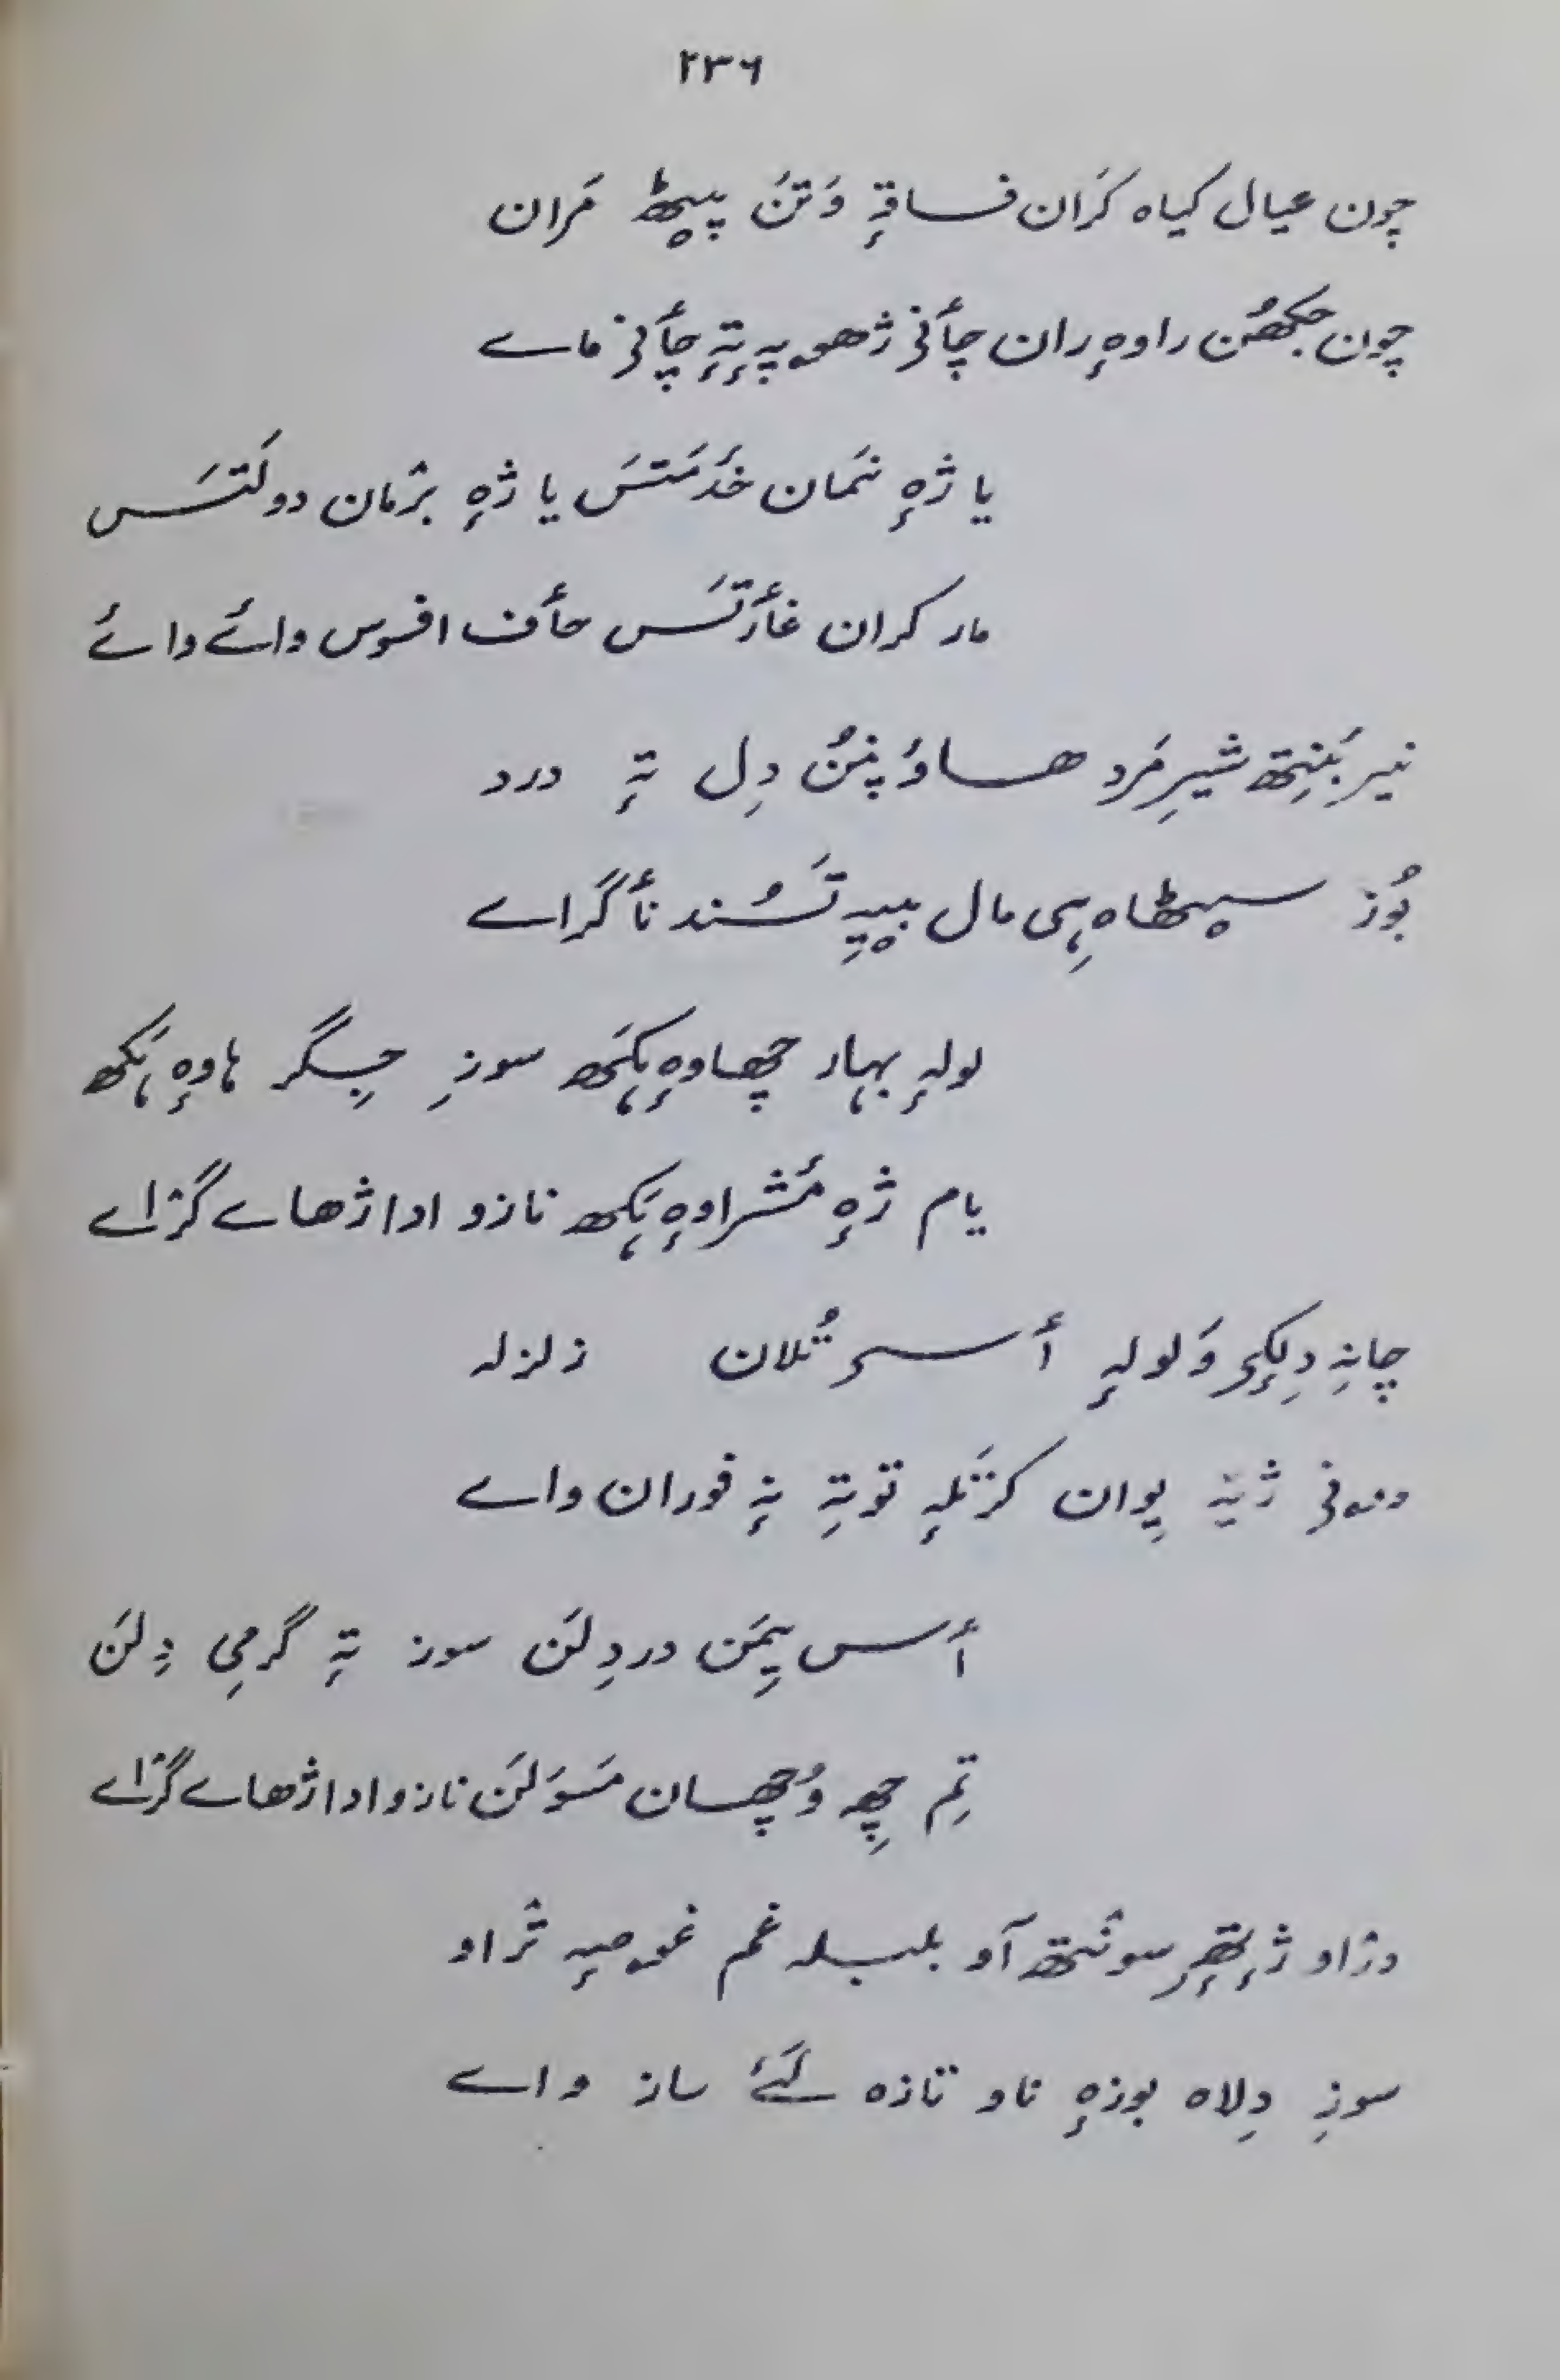 ۲۳۶
چون عیال کیاہ کَران فاقہٕ وَتَن پیٹھ مَران
چون جکھُن راوہٕ ران چأنۍ ژھوپہٕ تہٕ چأنۍ ماے
یا ژہٕ نمَان خدمَتَس یا ژہٕ برٛمان دولَتَس
مار کران غأرتَس حأف افسوس وائے وائے
نیر بَنِتھ شیرِ مَرد ھاوُ پنُن دِل تہٕ درد
بُوز سیٹھاہ ہِی مال بییہِ تَسُند نأگراے
لولہٕ بہار چھاوہٕ ہَکھ سوزِ جِگر ہاوہٕ ہَکھ
یام ژہٕ مٔشراوہٕ ہَکھ نازو ادا ژھاے گژاے
چانہِ دِلکہِ وَلولہٕ أسۍ تُلان زلزلہ
ژیہ پوان کرتَلہٕ توتہِ نہٕ فوران واے
أس یِمَن دردِلَن سوز تہٕ گرمی دِلَن
تِم چھِ وُچھان مَسوَلَن نازو ادا ژھاے گژاے
ژٕتھٕرِ سونتھ آو بلبلہ غم غوصہٕ ترٛاو
سوزِ دِلاہ بوزہٕ ناو تازہ گَے ساز واے